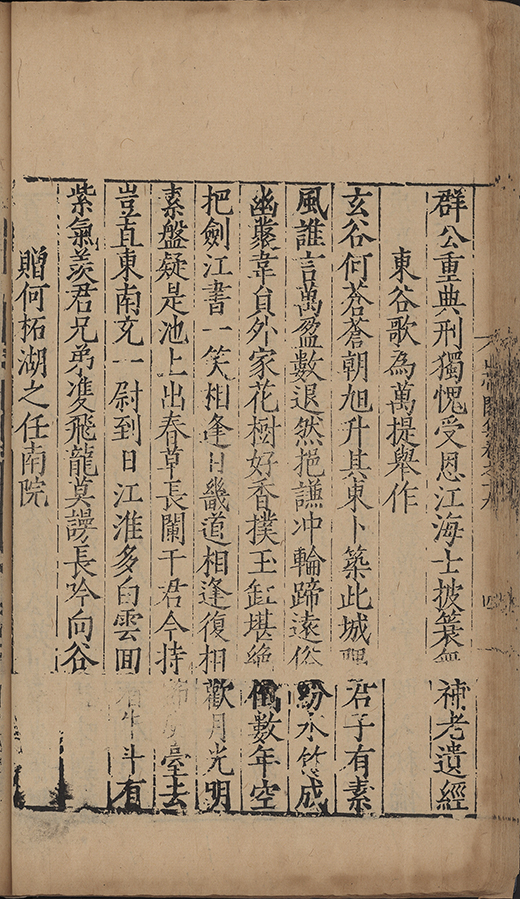 群公重典刑獨愧受恩江海士披簑無補考遺經
東谷歌為萬提舉作
玄谷何蒼蒼朝旭升其東卜築此城君子有素
風誰言萬盈數退然挹謙冲輪蹄遠俗紛水竹成
幽藂韋員外家花樹好香撲玉缸堪絶數年空
把劍江書一笑相逢日畿道相逢復相歡月光明
素盤疑是池上出春草長闌干君今持臺去
豈直東南充一尉到日江淮多白雲囬看牛斗有
紫氣羨君兄弟雙飛龍莫謾長吟向谷
贈何柘湖之任南院